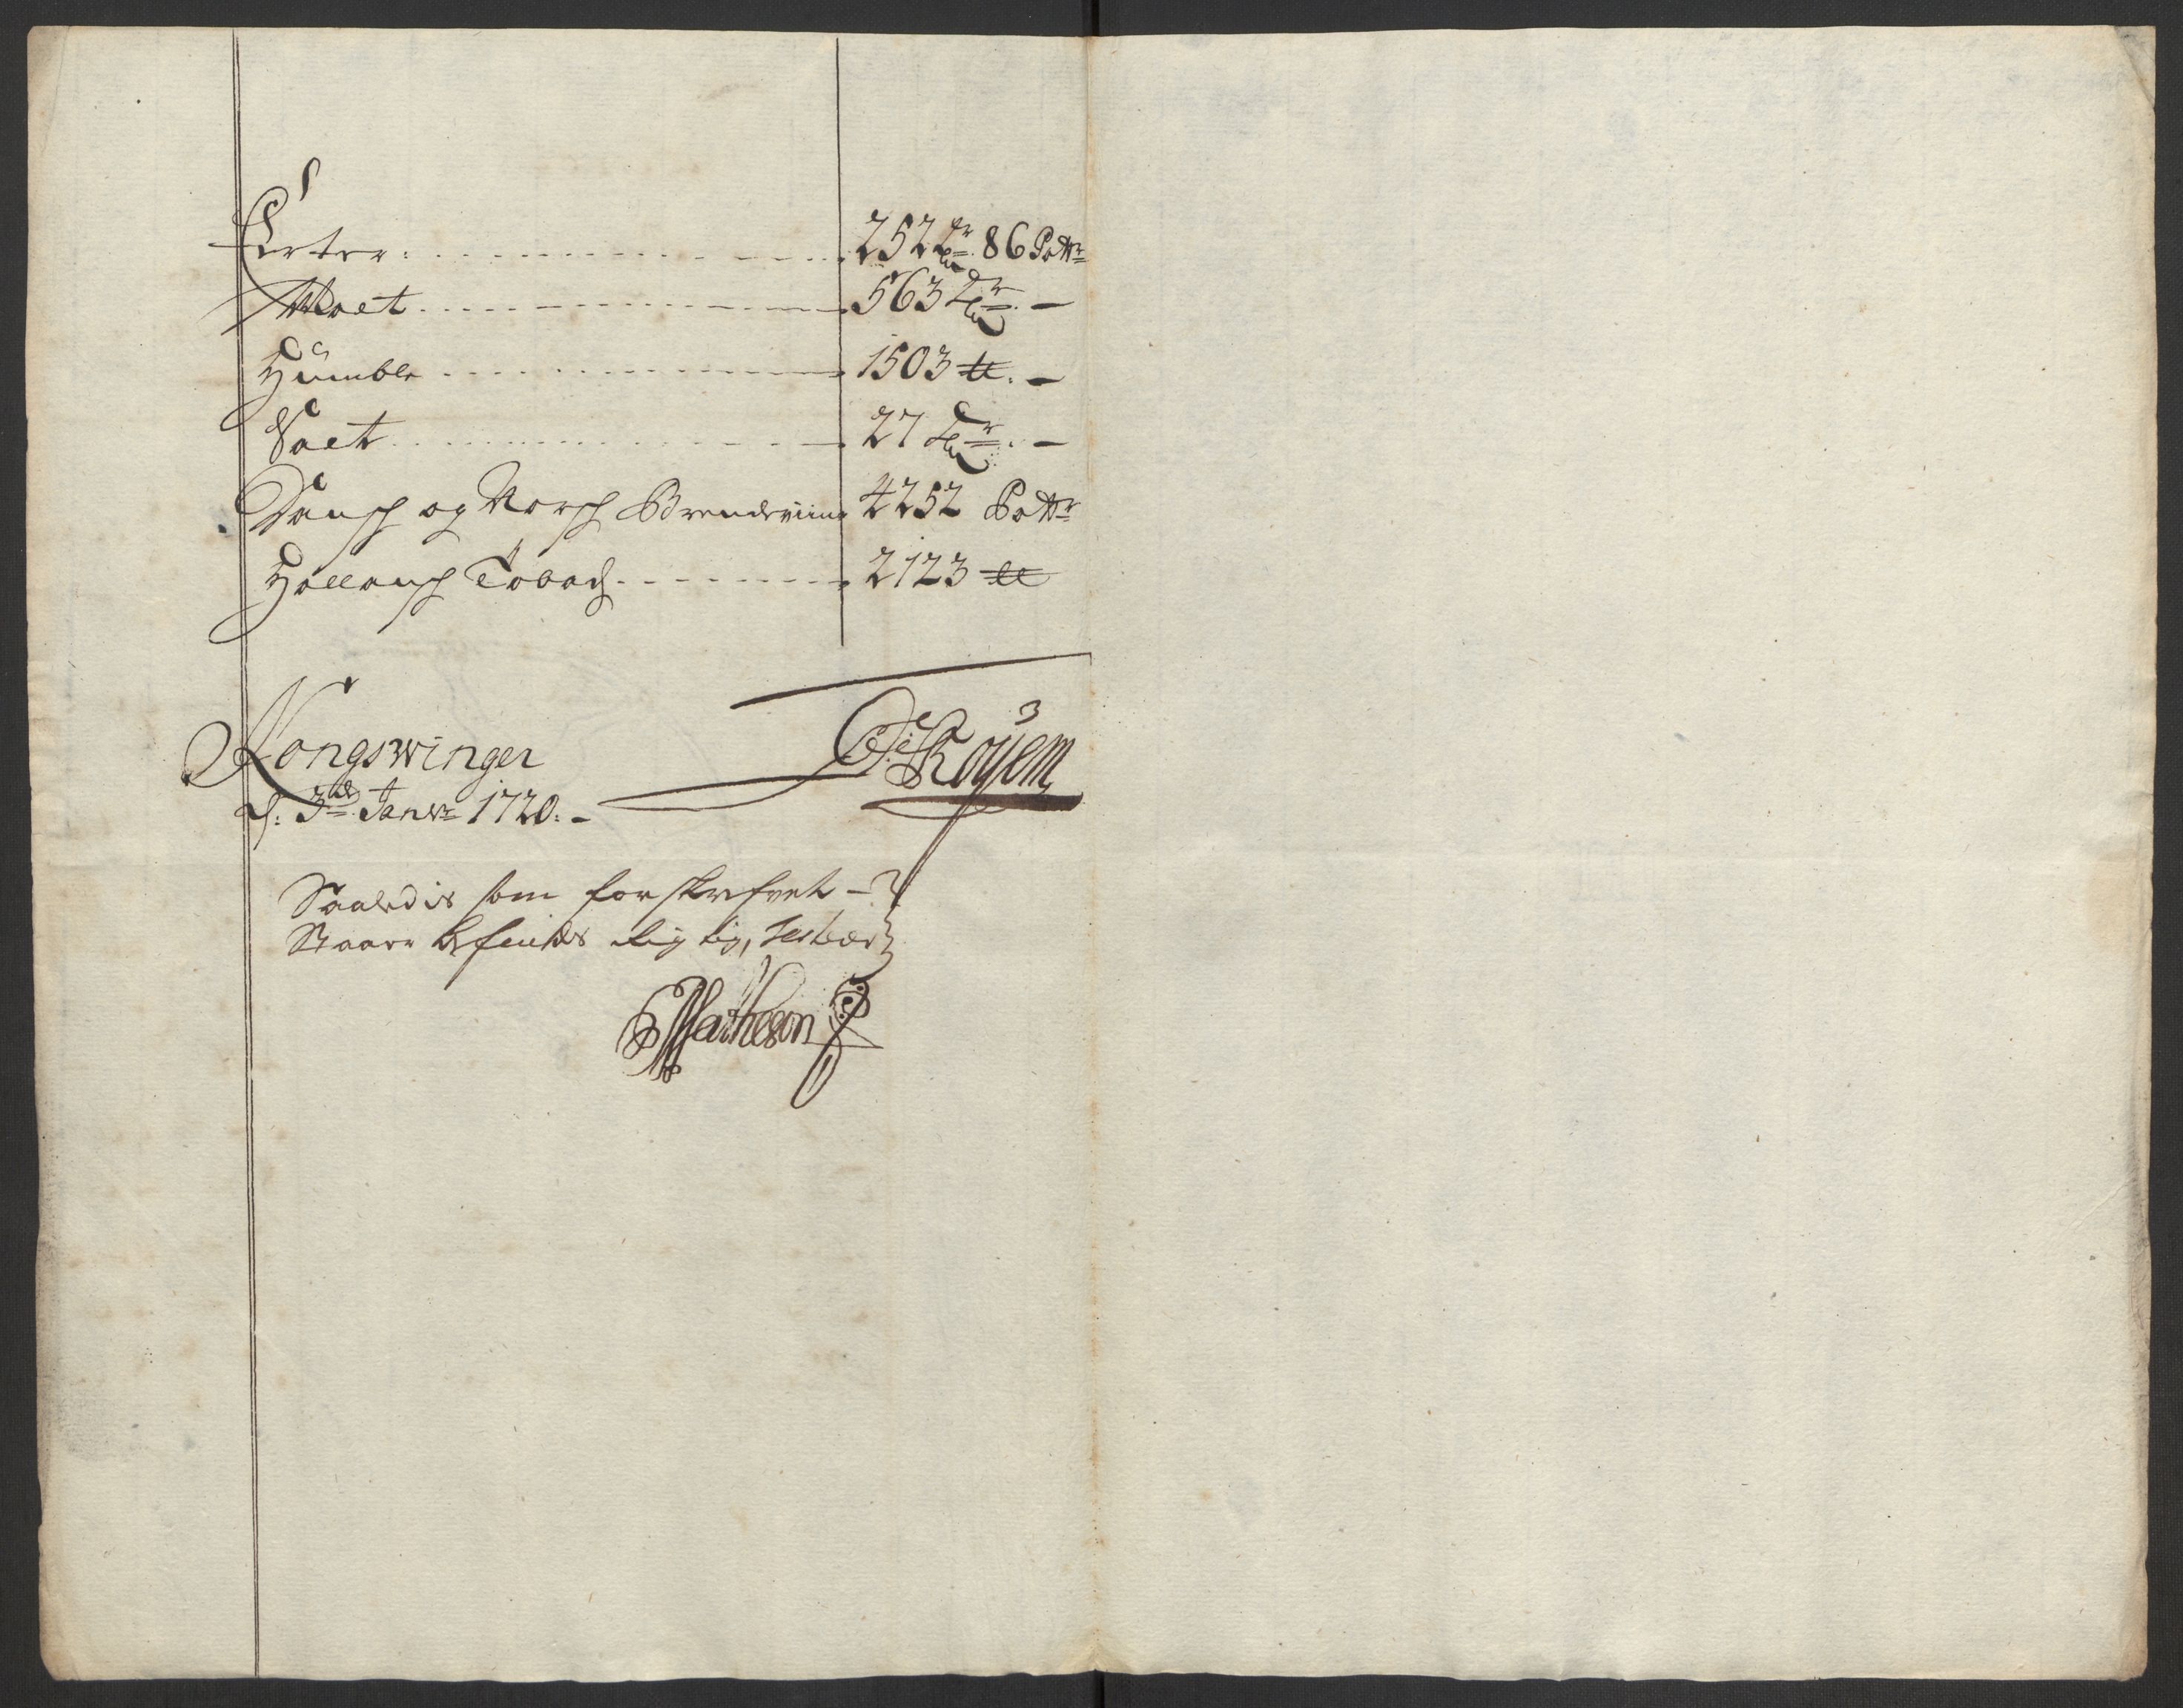 Erter: 252 Tr 86 Pottr
Malt 563 Tr. –
Humble 1503 ℔. –
Salt 27 Tr. –
Dansch og Norsch Brendeviin 4252 Pottr
Hollansch Toback 2123 ℔
Kongswinger
d: 3de Janr 1720. –
Røyem
Saaledis som forskrefvet –
Staar befindes Rigtig, Tester
Matheson